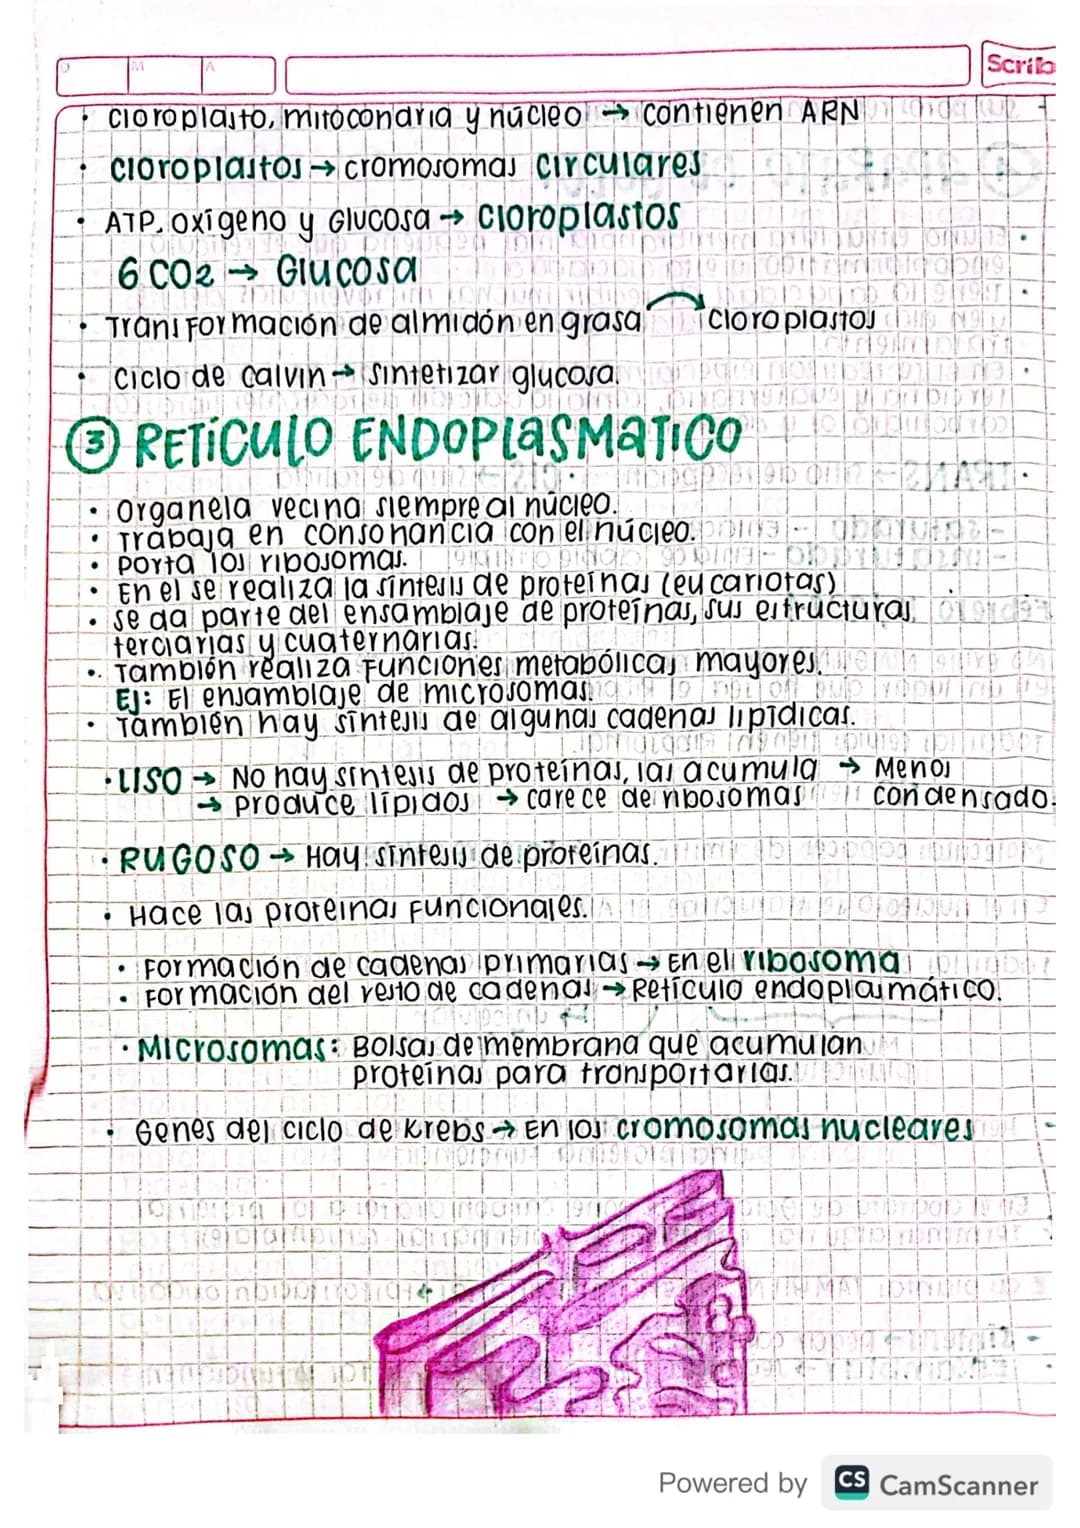 D M A
Scrib
• Cloroplasto, mitocondria y núcleo → Contienen ARN
• Cloroplastos → cromosomas circulares
• ATP, oxígeno y Glucosa → Cloroplastos
6 CO2 → Glucosa
• Transformación de almidón en grasa Cloroplastos
• Ciclo de Calvin → Sintetizar glucosa.
③ RETÍCULO ENDOPLASMATICO
• Organela vecina siempre al núcleo.
• Trabaja en consonancia con el núcleo.
• Porta los ribosomas.
• En el se realiza la síntesis de proteínas (eucariotas)
• Se da parte del ensamblaje de proteínas, sus estructuras
terciarias y cuaternarias.
• También realiza Funciones metabólicas mayores.
Ej: El ensamblaje de microsomas
• También hay síntesis de algunas cadenas lipídicas.
• LISO → No hay síntesis de proteínas, las acumula → Menos
→ produce lípidos → carece de ribosomas condensado.
• RUGOSO → Hay síntesis de proteínas.
• Hace las proteinas Funcionales.
• Formación de cadenas primarias → En el ribosoma
• Formación del resto de cadenas → Retículo endoplasmático.
• Microsomas: Bolsas de membrana que acumulan
proteínas para transportarlas.
• Genes del ciclo de Krebs → En los cromosomas nucleares
Powered by CS CamScanner